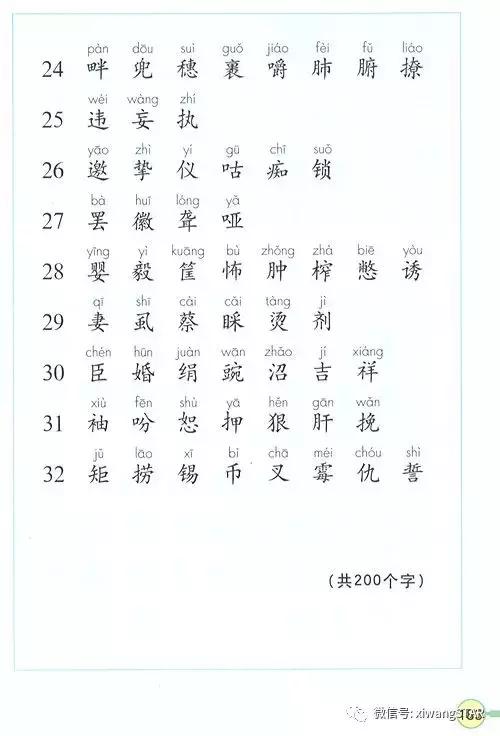 pàn dōu suì guǒ jiáo fèi fǔ liáo
24 畔 兜 穗 裹 嚼 肺 腑 撩
wéi wàng zhí
25 违 妄 执
yāo zhì yí gū chī suǒ
26 邀 挚 仪 咕 痴 锁
bà huī lóng yǎ
27 罢 徽 聋 哑
yīng yì kuāng bù zhǒng zhà biē yòu
28 婴 毅 筐 怖 肿 榨 憋 诱
qī shī cài cǎi tàng jì
29 妻 虱 蔡 睬 烫 剂
chén hūn juàn wān zhǎo jí xiáng
30 臣 婚 绢 豌 沼 吉 祥
xiù fēn shù yā hěn gān wǎn
31 袖 吩 恕 押 狠 肝 挽
jǔ lāo xī bì chā méi chóu shì
32 矩 捞 锡 币 叉 霉 仇 誓
（共200个字）
微信号: xiwangSTAR